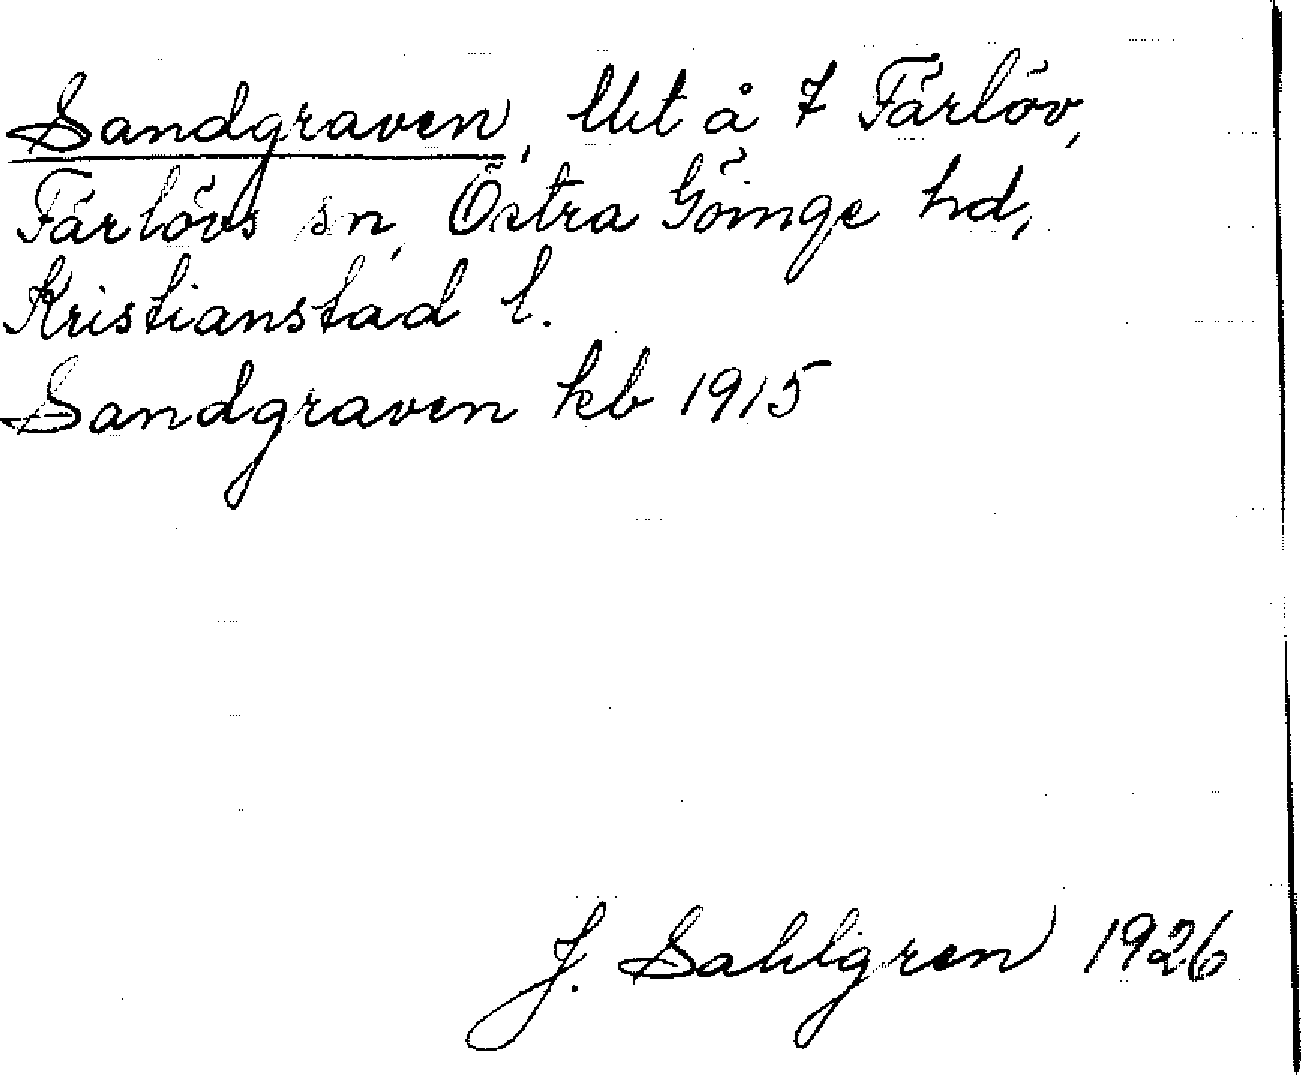 Sandgraven, lht å 7 Färlöv,
Färlövs sn, Östra Göinge hd,
Kristianstad l.
Sandgraven kb 1915
J. Sahlgren 1926